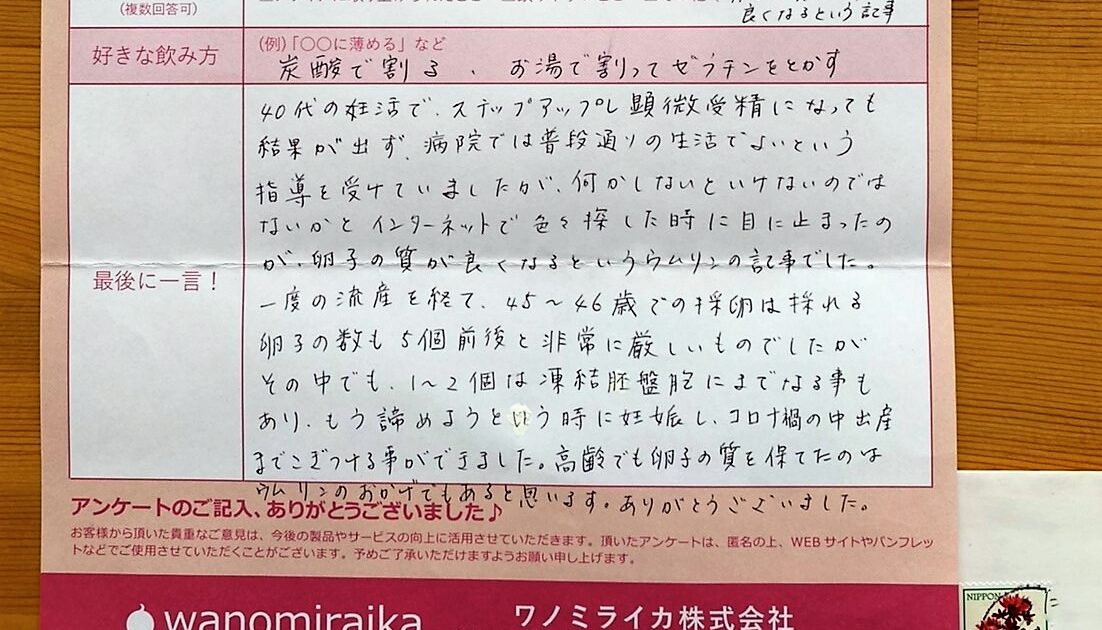 (複数回答可)
良くなるという記事
好きな飲み方
(例)「〇〇に薄める」など
炭酸で割る 、 お湯で割ってゼラチンをとかす
最後に一言！
40代の妊活で、ステップアップし顕微受精になっても
結果が出ず、病院では普段通りの生活でよいという
指導を受けていましたが、何かしないといけないのでは
ないかとインターネットで色々探した時に目に止まったの
が、卵子の質が良くなるというウムリンの記事でした。
一度の流産を経て、45〜46歳での採卵は採れる
卵子の数も5個前後と非常に厳しいものでしたが
その中でも、1〜2個は凍結胚盤胞にまでなる事も
あり、もう諦めようという時に妊娠し、コロナ禍の中出産
までこぎつける事ができました。高齢でも卵子の質を保てたのは
ウムリンのおかげでもあると思います。ありがとうございました。
アンケートのご記入、ありがとうございました♪
お客様から頂いた貴重なご意見は、今後の製品やサービスの向上に活用させていただきます。頂いたアンケートは、匿名の上、WEBサイトやパンフレッ
トなどでご使用させていただくことがございます。予めご了承いただけますようお願い申し上げます。
wanomiraika
ワノミライカ株式会社
NIPPON